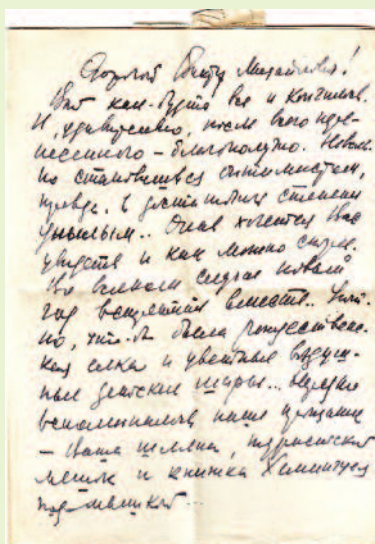 Дорогой Виктор Михайлович!
Вот как-будто все и кончилось.
И, удивительно, после всего пере-
несенного – благополучно. Неволь-
но становишься оптимистом,
правда, в достаточной степени
унылым.. Очень хочется Вас
увидеть и как можно скорее.
Во всяком случае новый
год встретить вместе.. Хочь-
но, чтоб была рождественс-
кая елка и цветные воздуш-
ные детские шары...
вспоминалось наше прощание
– Ваша шляпа, туристский
мешок и книжка Хемингуэя
под мышкой...